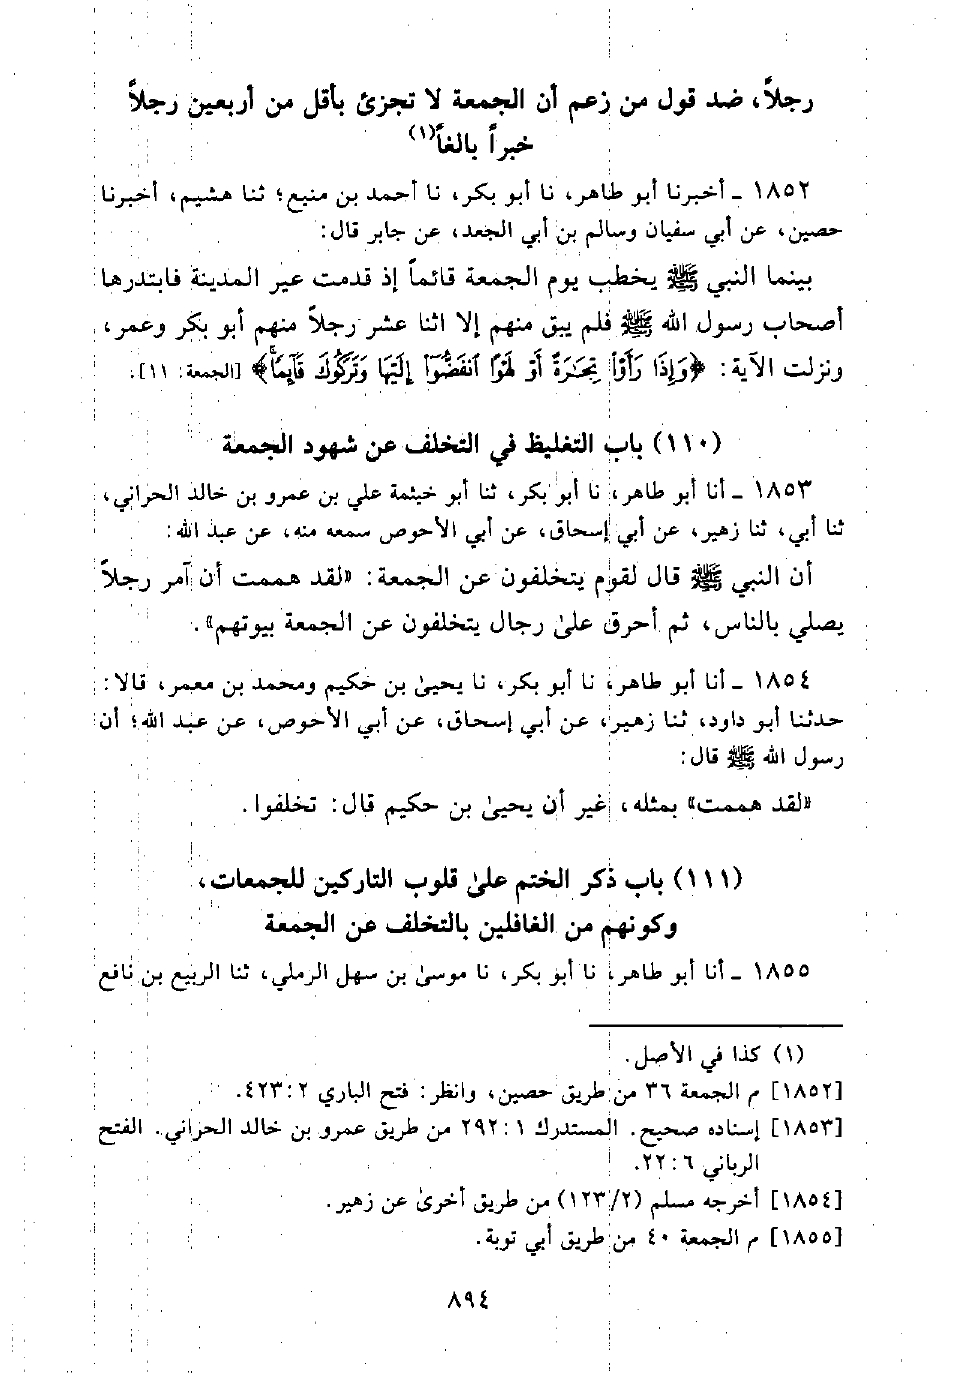 رجلاً، ضد قول من زعم أن الجمعة لا تجزئ بأقل من أربعين رجلاً
خبراً بالغاً(١)
١٨٥٢ ـ أخبرنا أبو طاهر، نا أبو بكر، نا أحمد بن منيع؛ ثنا هشيم، أخبرنا
حصين، عن أبي سفيان وسالم بن أبي الجعد، عن جابر قال:
بينما النبي ﷺ يخطب يوم الجمعة قائماً إذ قدمت عير المدينة فابتدرها
أصحاب رسول الله ﷺ فلم يبق منهم إلا اثنا عشر رجلاً منهم أبو بكر وعمر،
ونزلت الآية: ﴿وَإِذَا رَأَوْا۟ تِجَـٰرَةً أَوْ لَهْوًا ٱنفَضُّوٓا۟ إِلَيْهَا وَتَرَكُوكَ قَآئِمًا ۚ﴾ [الجمعة: ١١].
(١١٠) باب التغليظ في التخلف عن شهود الجمعة
١٨٥٣ ـ أنا أبو طاهر، نا أبو بكر، ثنا أبو خيثمة علي بن عمرو بن خالد الحراني،
ثنا أبي، ثنا زهير، عن أبي إسحاق، عن أبي الأحوص سمعه منه، عن عبد الله:
أن النبي ﷺ قال لقوم يتخلفون عن الجمعة: «لقد هممت أن آمر رجلاً
يصلي بالناس، ثم أحرق علىٰ رجال يتخلفون عن الجمعة بيوتهم».
١٨٥٤ ـ أنا أبو طاهر، نا أبو بكر، نا يحيىٰ بن حكيم ومحمد بن معمر، قالا:
حدثنا أبو داود، ثنا زهير، عن أبي إسحاق، عن أبي الأحوص، عن عبد الله؛ أن
رسول الله ﷺ قال:
«لقد هممت» بمثله، غير أن يحيىٰ بن حكيم قال: تخلفوا.
(١١١) باب ذكر الختم علىٰ قلوب التاركين للجمعات،
وكونهم من الغافلين بالتخلف عن الجمعة
١٨٥٥ ـ أنا أبو طاهر، نا أبو بكر، نا موسىٰ بن سهل الرملي، ثنا الربيع بن نافع
(١) كذا في الأصل.
[١٨٥٢] م الجمعة ٣٦ من طريق حصين، وانظر: فتح الباري ٢: ٤٢٣.
[١٨٥٣] إسناده صحيح. المستدرك ١: ٢٩٢ من طريق عمرو بن خالد الحراني. الفتح
الرباني ٦: ٢٢.
[١٨٥٤] أخرجه مسلم (٢/ ١٢٣) من طريق أخرىٰ عن زهير.
[١٨٥٥] م الجمعة ٤٠ من طريق أبي توبة.
٨٩٤